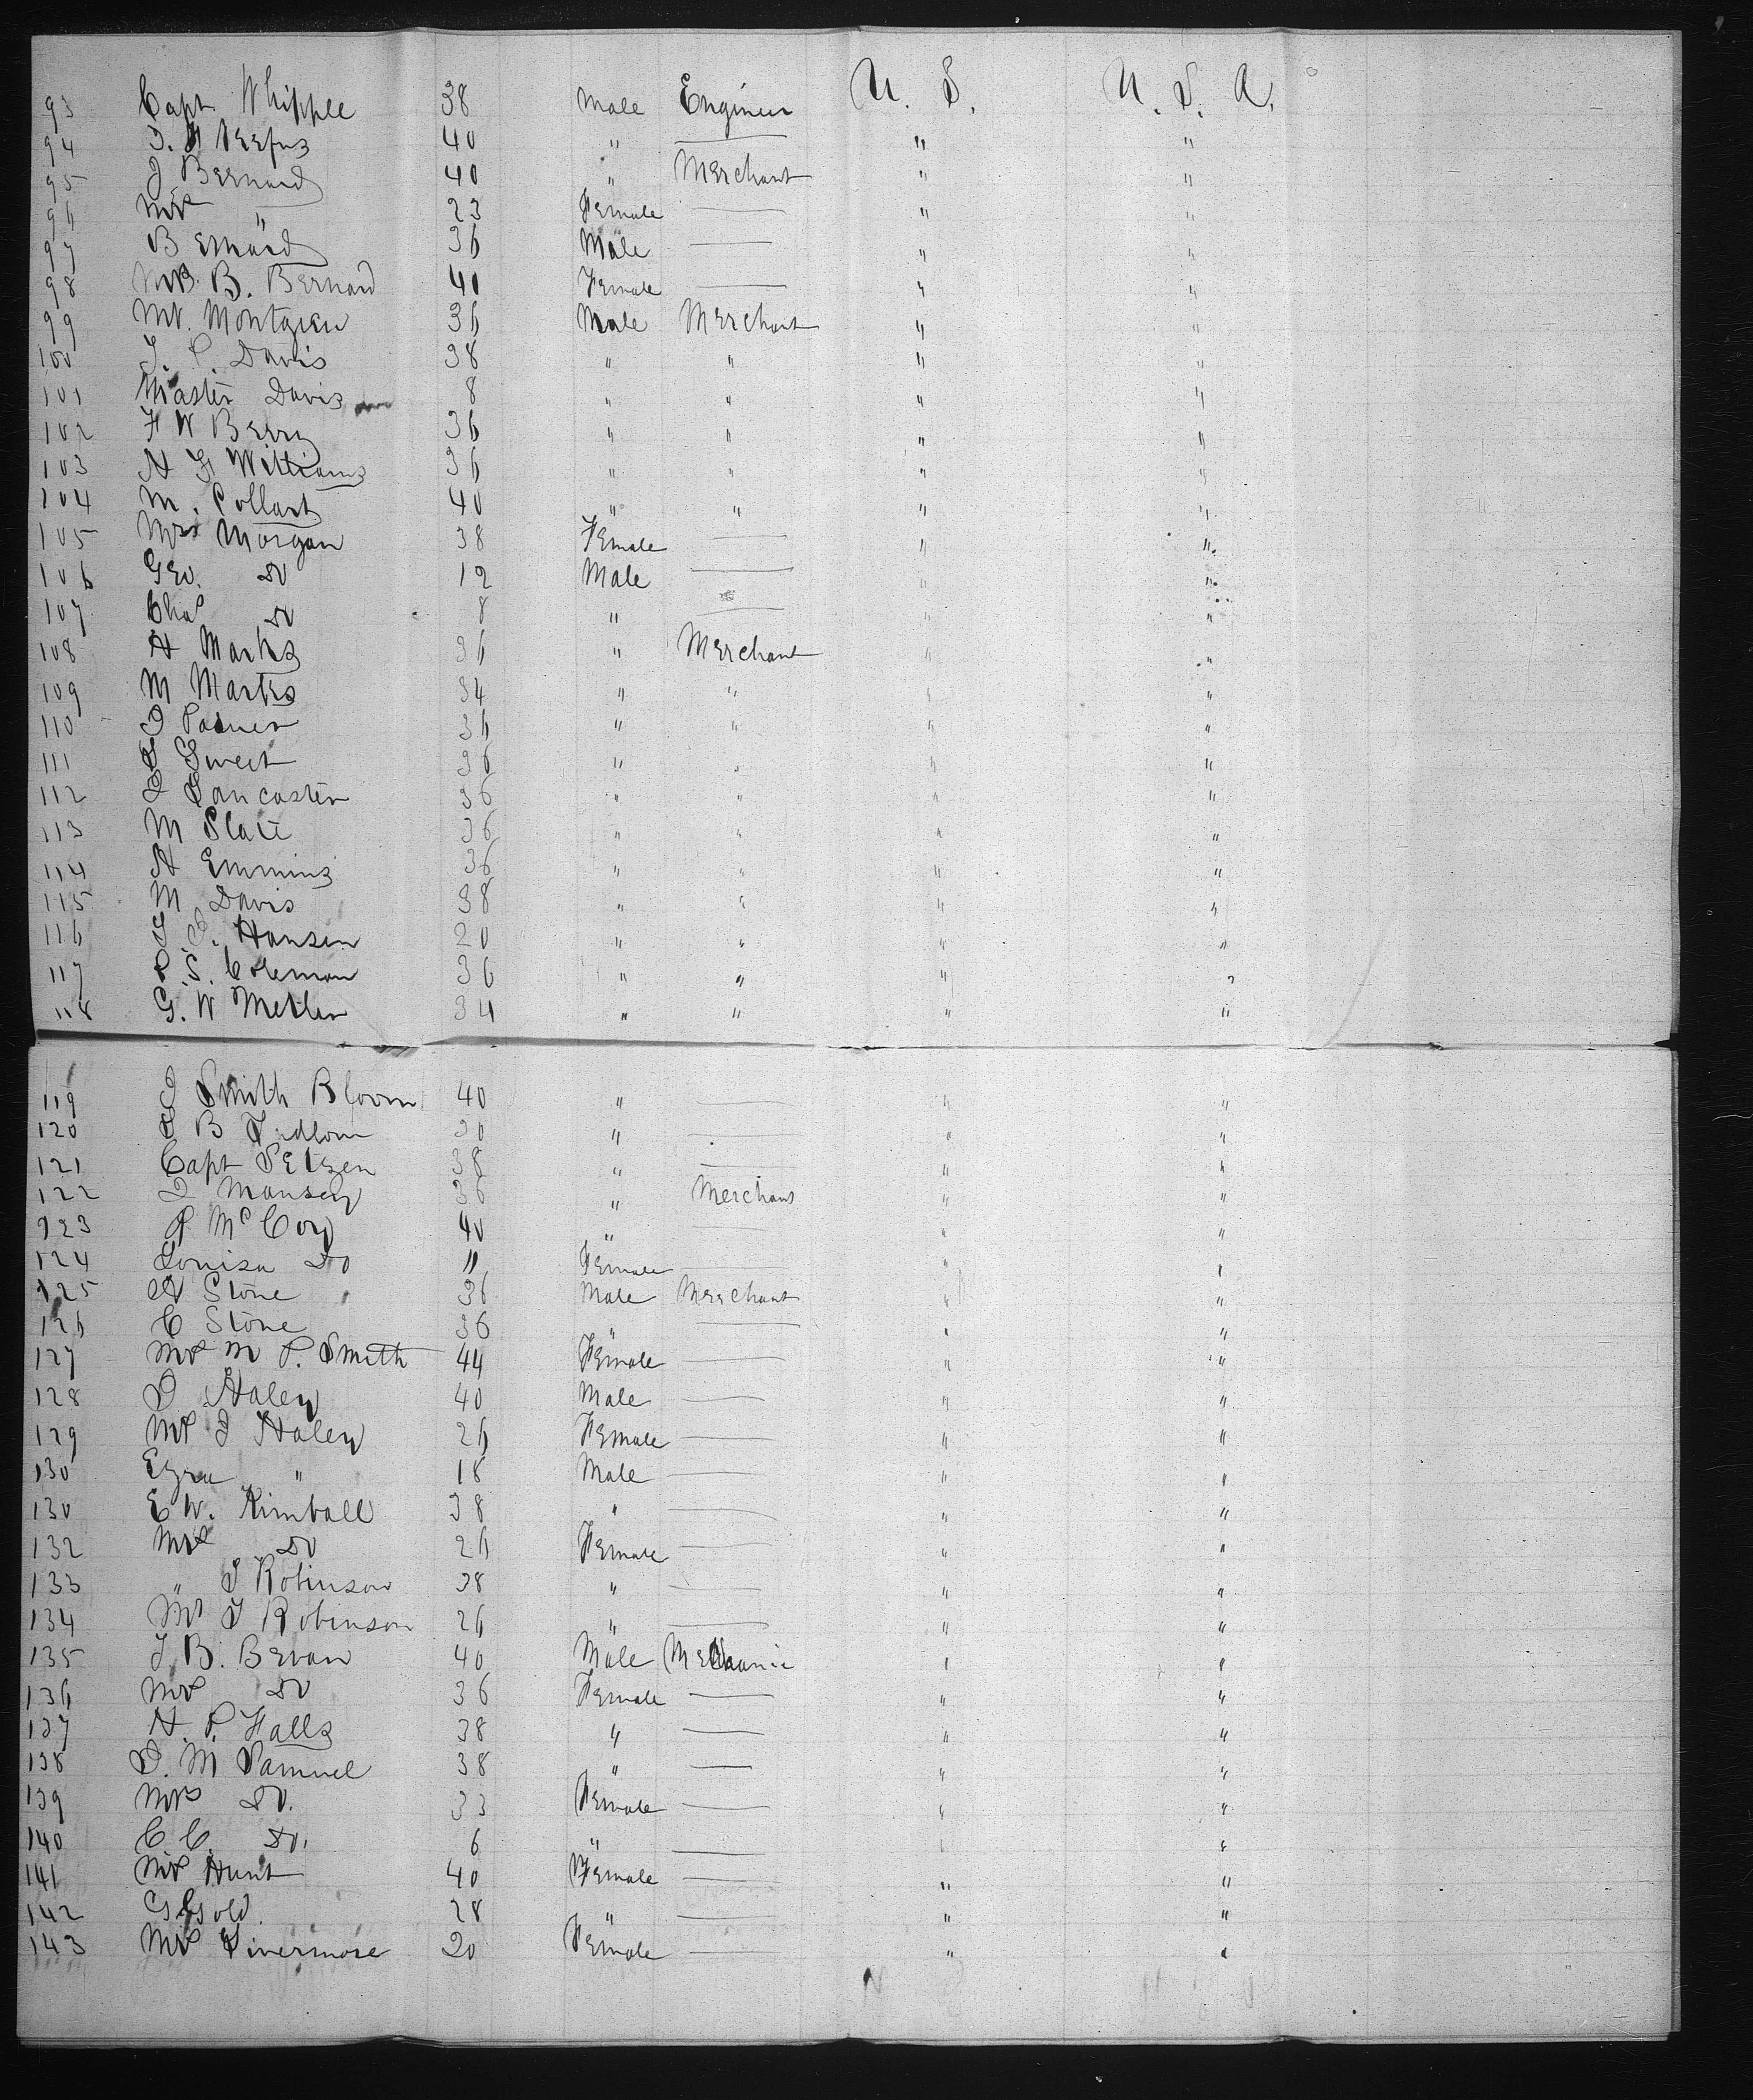 93 Capt. Whipple 38 Male Engineer U. S. U. S. A.
94 40 " — " "
95 J Bernard 40 " Merchant " "
96 Mrs " 23 Female — " "
97 B Ernard 36 Male — " "
98 Mrs. B. Bernard 40 Female — " "
99 Mr. 36 Male Merchant " "
100 J. P. Davis 38 " " " "
101 Master Davis 8 " " " "
102 F W Berry 36 " " " "
103 Williams 36 " " " "
104 M. Collart 40 " " " "
105 Mrs Morgan 38 Female — " "
106 Geo. Do 12 Male — " "
107 Chas Do 8 " — " "
108 H Marks 36 " Merchant " "
109 M Marks 34 " " " "
110 36 " " " "
111 Sweet 36 " " " "
112 Lancaster 36 " " " "
113 M Slate 36 " " " "
114 H Emmins 36 " " " "
115 M Davis 38 " " " "
116 Hansen 20 " " " "
117 P. S. Coleman 36 " " " "
118 G. W Metler 34 " " " "
119 J Smith Bloom 40 " — " "
120 B 30 " — " "
121 Capt 38 " — " "
122 36 " Merchant " "
123 P McCoy 40 " — " "
124 Louisa Do 11 Female — " "
125 A Stone 36 Male Merchant " "
126 C Stone 36 " — " "
127 Mrs M P. Smith 44 Female — " "
128 J Haley 40 Male — " "
129 Mrs J Haley 26 Female — " "
130 Ezra " 18 Male — " "
130 E W. Kimball 38 " — " "
132 Mrs Do 26 Female — " "
133 " J Robinson 38 " — " "
134 Mrs J Robinson 26 " — " "
135 J. B. Bevan 40 Male Mechanic " "
136 Mrs Do 36 Female — " "
137 H. P. Falls 38 " — " "
138 M Samuel 38 " — " "
139 Mrs Do. 33 Female — " "
140 C. C. Do. 6 " — " "
141 Mrs Hunt 40 Female — " "
142 28 " — " "
143 Mrs Livermore 20 Female — " "